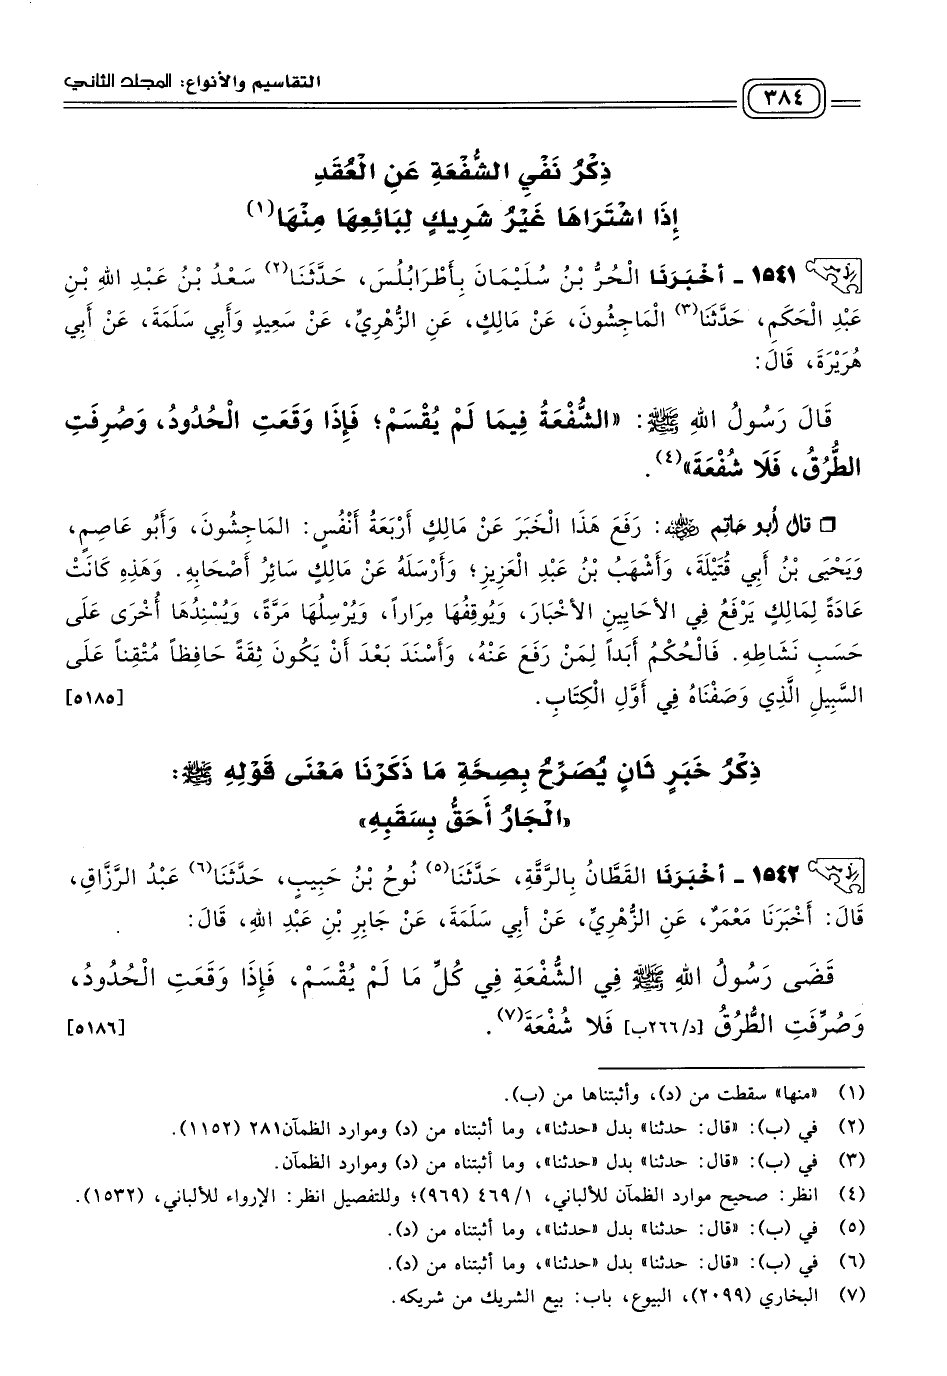 التقاسيم والأنواع: المجلد الثاني
٣٨٤
ذِكْرُ نَفْيِ الشُّفْعَةِ عَنِ الْعُقَدِ
إِذَا اشْتَرَاهَا غَيْرُ شَرِيكٍ لِبَائِعِهَا مِنْهَا(١)
١٥٤١ - أَخْبَرَنَا الْحُرُّ بْنُ سُلَيْمَانَ بِأَطْرَابُلُسَ، حَدَّثَنَا(٢) سَعْدُ بْنُ عَبْدِ اللهِ بْنِ
عَبْدِ الْحَكَمِ، حَدَّثَنَا(٣) الْمَاجِشُونَ، عَنْ مَالِكٍ، عَنِ الزُّهْرِيِّ، عَنْ سَعِيدٍ وَأَبِي سَلَمَةَ، عَنْ أَبِي
هُرَيْرَةَ، قَالَ:
قَالَ رَسُولُ اللهِ ﷺ: «الشُّفْعَةُ فِيمَا لَمْ يُقْسَمْ؛ فَإِذَا وَقَعَتِ الْحُدُودُ، وَصُرِفَتِ
الطُّرُقُ، فَلَا شُفْعَةَ»(٤).
□ قال أبو حاتم رضي الله عنه: رَفَعَ هَذَا الْخَبَرَ عَنْ مَالِكٍ أَرْبَعَةُ أَنْفُسٍ: الْمَاجِشُونَ، وَأَبُو عَاصِمٍ،
وَيَحْيَى بْنُ أَبِي قُتَيْلَةَ، وَأَشْهَبُ بْنُ عَبْدِ الْعَزِيزِ؛ وَأَرْسَلَهُ عَنْ مَالِكٍ سَائِرُ أَصْحَابِهِ. وَهَذِهِ كَانَتْ
عَادَةً لِمَالِكٍ يَرْفَعُ فِي الأَحَايِينِ الأَخْبَارَ، وَيُوقِفُهَا مِرَاراً، وَيُرْسِلُهَا مَرَّةً، وَيُسْنِدُهَا أُخْرَى عَلَى
حَسَبِ نَشَاطِهِ. فَالْحُكْمُ أَبَداً لِمَنْ رَفَعَ عَنْهُ، وَأَسْنَدَ بَعْدَ أَنْ يَكُونَ ثِقَةً حَافِظاً مُتْقِناً عَلَى
السَّبِيلِ الَّذِي وَصَفْنَاهُ فِي أَوَّلِ الْكِتَابِ. [٥١٨٥]
ذِكْرُ خَبَرٍ ثَانٍ يُصَرِّحُ بِصِحَّةِ مَا ذَكَرْنَا مَعْنَى قَوْلِهِ ﷺ:
«الْجَارُ أَحَقُّ بِسَقَبِهِ»
١٥٤٢ - أَخْبَرَنَا القَطَّانُ بِالرَّقَّةِ، حَدَّثَنَا(٥) نُوحُ بْنُ حَبِيبٍ، حَدَّثَنَا(٦) عَبْدُ الرَّزَّاقِ،
قَالَ: أَخْبَرَنَا مَعْمَرٌ، عَنِ الزُّهْرِيِّ، عَنْ أَبِي سَلَمَةَ، عَنْ جَابِرِ بْنِ عَبْدِ اللهِ، قَالَ:
قَضَى رَسُولُ اللهِ ﷺ فِي الشُّفْعَةِ فِي كُلِّ مَا لَمْ يُقْسَمْ، فَإِذَا وَقَعَتِ الْحُدُودُ،
وَصُرِّفَتِ الطُّرُقُ [د/٢٦٦ب] فَلا شُفْعَةَ(٧). [٥١٨٦]
(١) «منها» سقطت من (د)، وأثبتناها من (ب).
(٢) في (ب): «قال: حدثنا» بدل «حدثنا»، وما أثبتناه من (د) وموارد الظمآن٢٨١ (١١٥٢).
(٣) في (ب): «قال: حدثنا» بدل «حدثنا»، وما أثبتناه من (د) وموارد الظمآن.
(٤) انظر: صحيح موارد الظمآن للألباني، ٤٦٩/١ (٩٦٩)؛ وللتفصيل انظر: الإرواء للألباني، (١٥٣٢).
(٥) في (ب): «قال: حدثنا» بدل «حدثنا»، وما أثبتناه من (د).
(٦) في (ب): «قال: حدثنا» بدل «حدثنا»، وما أثبتناه من (د).
(٧) البخاري (٢٠٩٩)، البيوع، باب: بيع الشريك من شريكه.